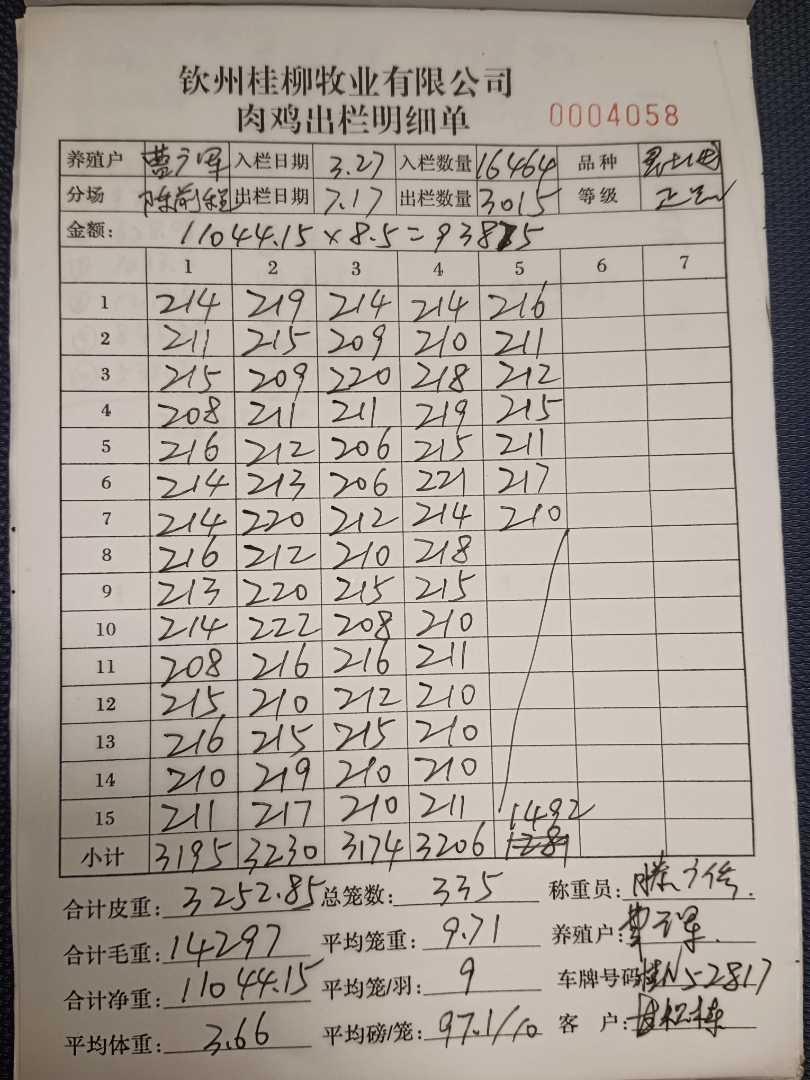 钦州桂柳牧业有限公司
肉鸡出栏明细单 0004058
养殖户 曹 军 入栏日期 3.27 入栏数量 16464 品种
分场 陈前程 出栏日期 7.17 出栏数量 3015 等级 正
金额: 11044.15 × 8.5 = 93875
1 2 3 4 5 6 7
1 214 219 214 214 216
2 211 215 209 210 211
3 215 209 220 218 212
4 208 211 211 219 215
5 216 212 206 215 211
6 214 213 206 221 217
7 214 220 212 214 210
8 216 212 210 218
9 213 220 215 215
10 214 222 208 210
11 208 216 216 211
12 215 210 212 210
13 216 215 215 210
14 210 219 210 210
15 211 217 210 211 1492
小计 3195 3230 3174 3206
合计皮重: 3252.85 总笼数: 335 称重员:
合计毛重: 14297 平均笼重: 9.71 养殖户: 曹 军
合计净重: 11044.15 平均笼/羽: 9 车牌号码: 桂N52817
平均体重: 3.66 平均磅/笼: 97.1/10 客 户: